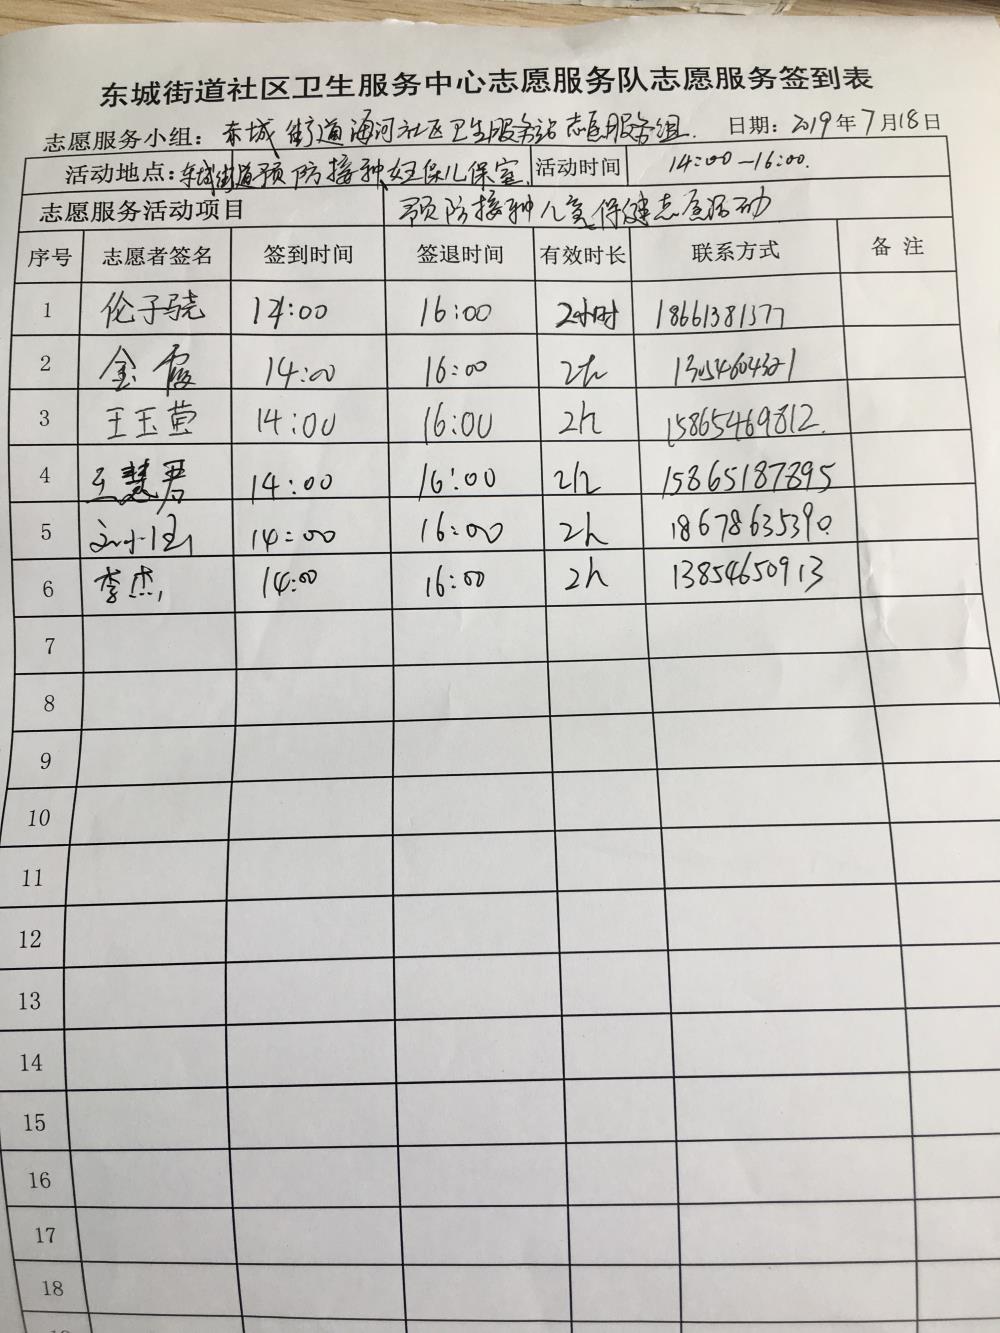 东城街道社区卫生服务中心志愿服务队志愿服务签到表
志愿服务小组：东城街道海河社区卫生服务站志愿服务组. 日期：2019年7月18日
活动地点：东城街道预防接种、妇保儿保室. 活动时间 14:00—16:00.
志愿服务活动项目 预防接种儿童保健志愿活动
序号 志愿者签名 签到时间 签退时间 有效时长 联系方式 备注
1 伦子骁 14:00 16:00 2小时 18661381377
2 金霞 14:00 16:00 2h
3 王玉萱 14:00 16:00 2h 15865469812.
4 王慧君 14:00 16:00 2h 15865187895
5 14:00 16:00 2h 18678635390
6 李杰 14:00 16:00 2h 13854650913
7
8
9
10
11
12
13
14
15
16
17
18